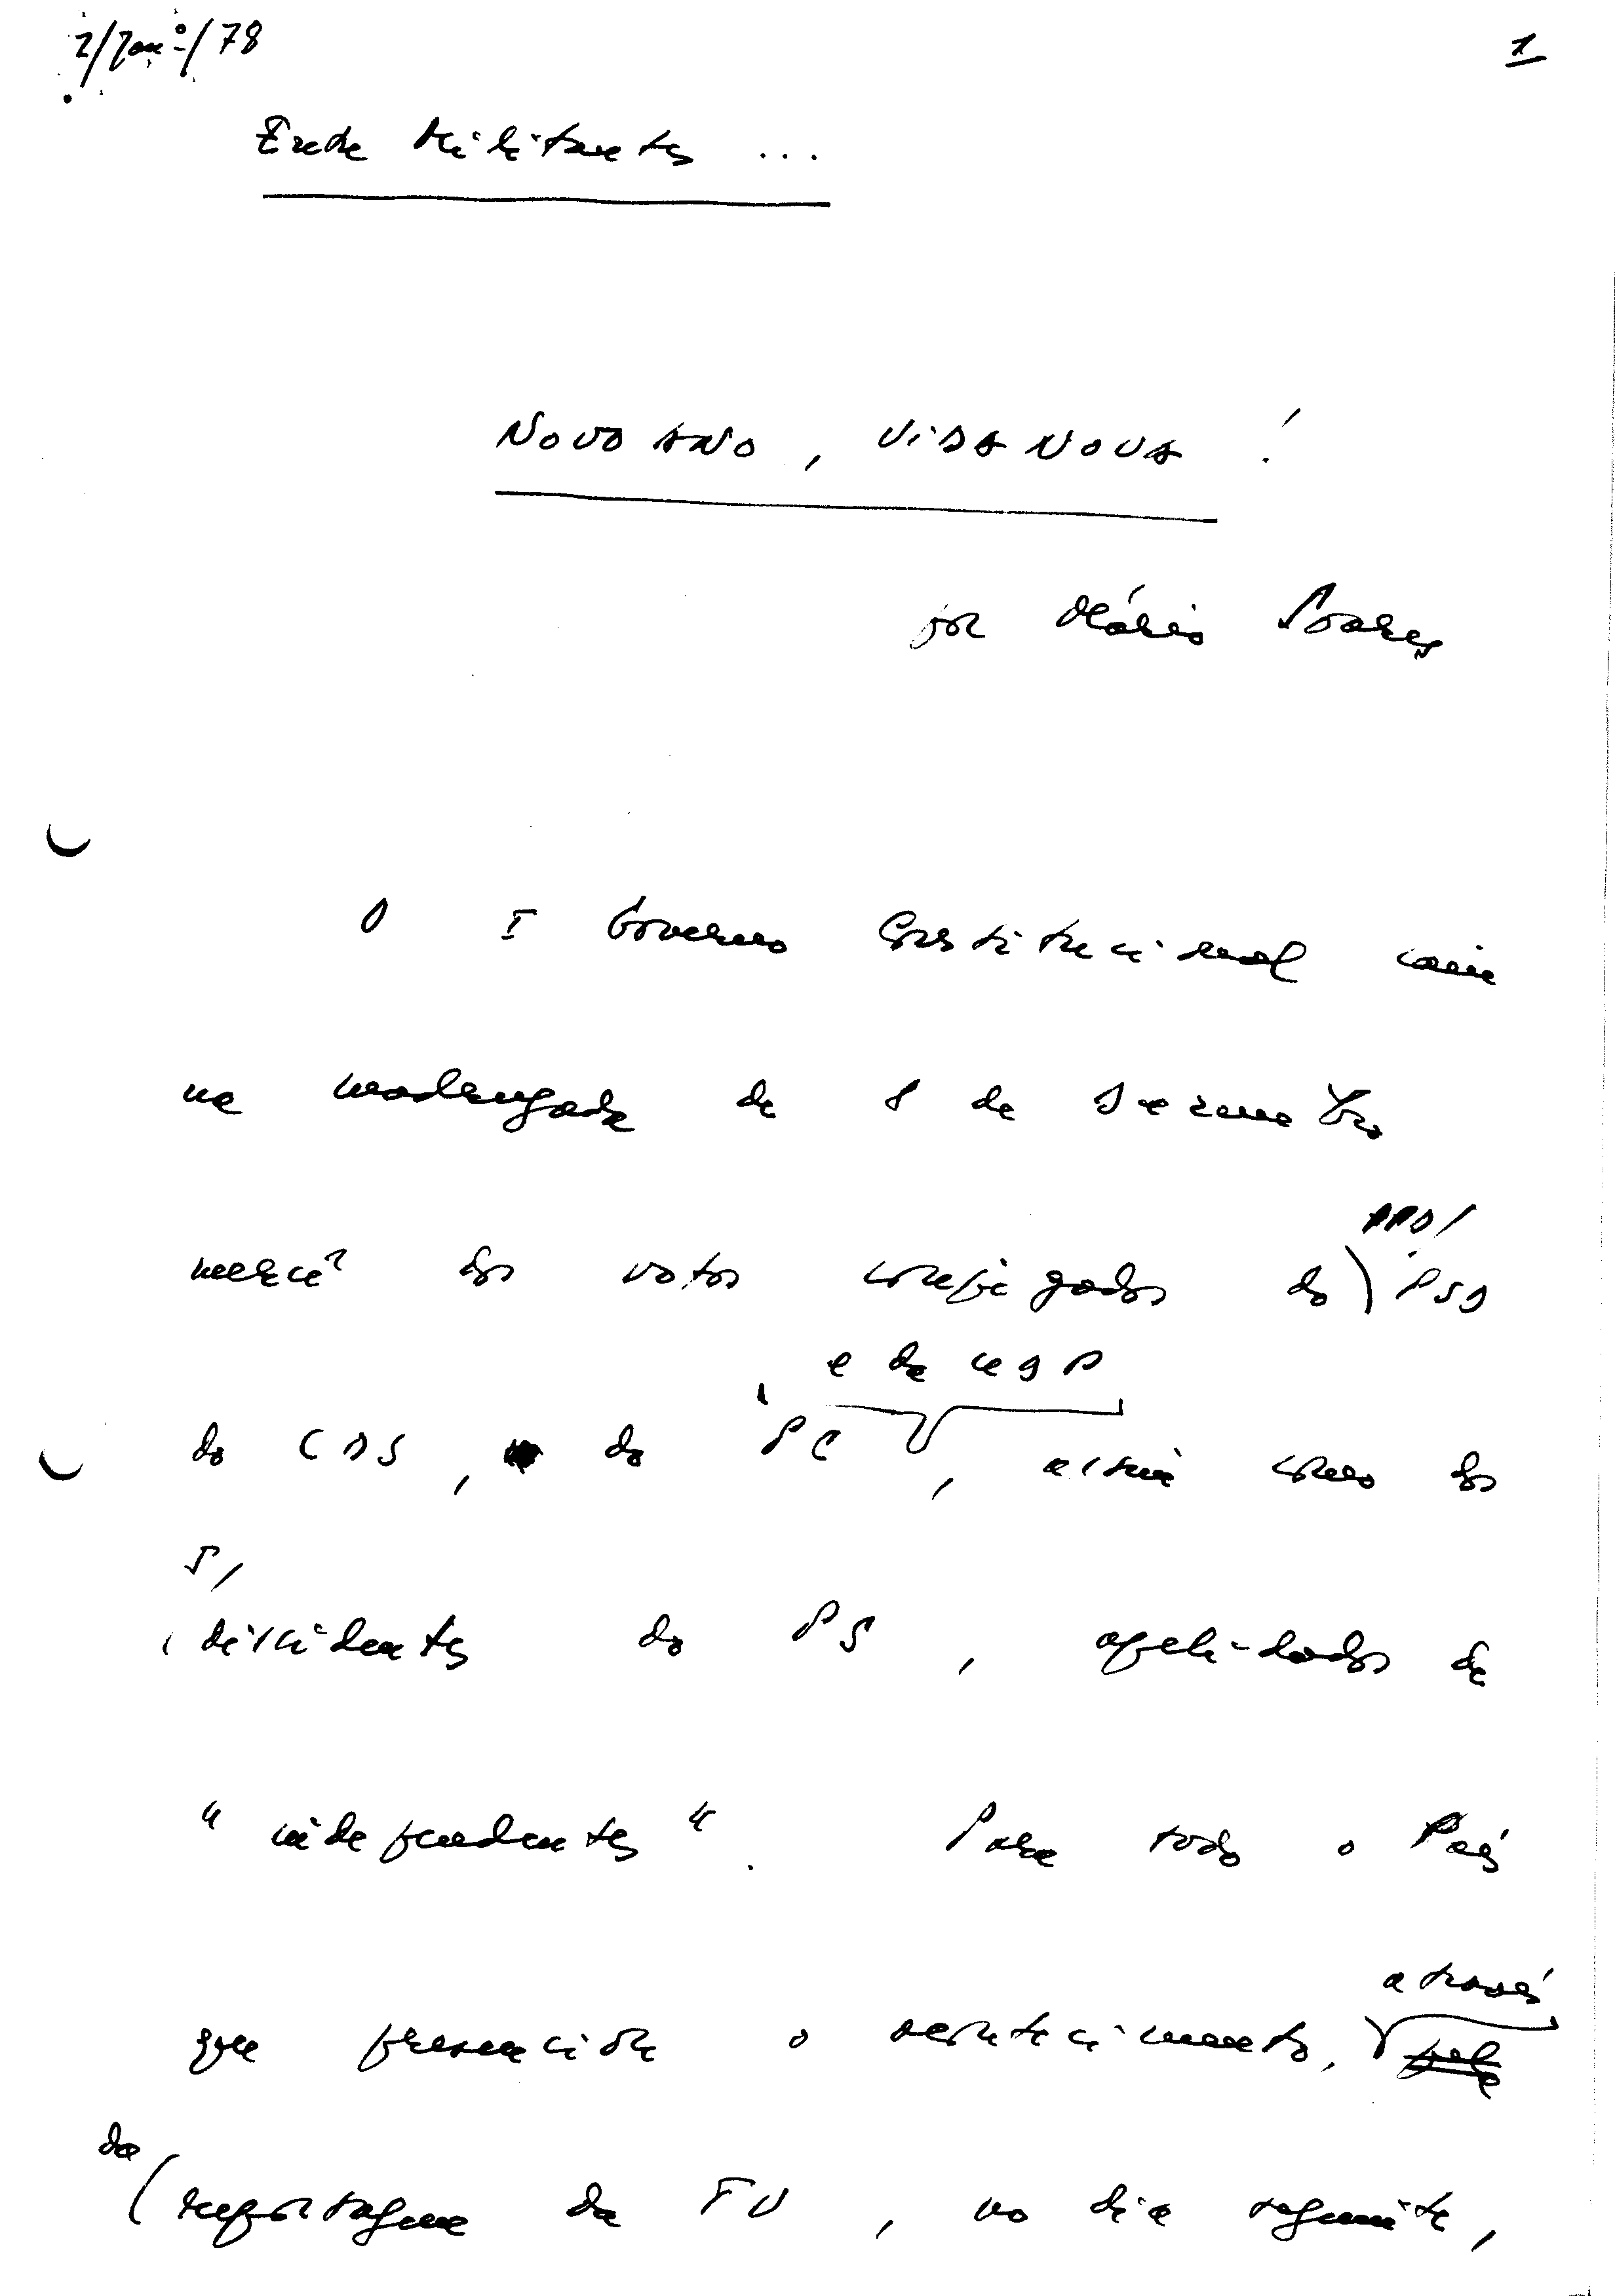 2/Janº/78
1
Entre Militantes ...
NOVO ANO, VIDA NOVA!
por Mário Soares
O I Governo Constitucional caiu
na madrugada de 8 de Dezembro
mercê dos votos conjugados do PPD/
PSD
e da UDP
do CDS, do PC, assim como dos
dissidentes do PS, apelidados de
"independentes". Para todo o País
através
que presenciou o acontecimento, pela
da
reportagem da TV, no dia seguinte,